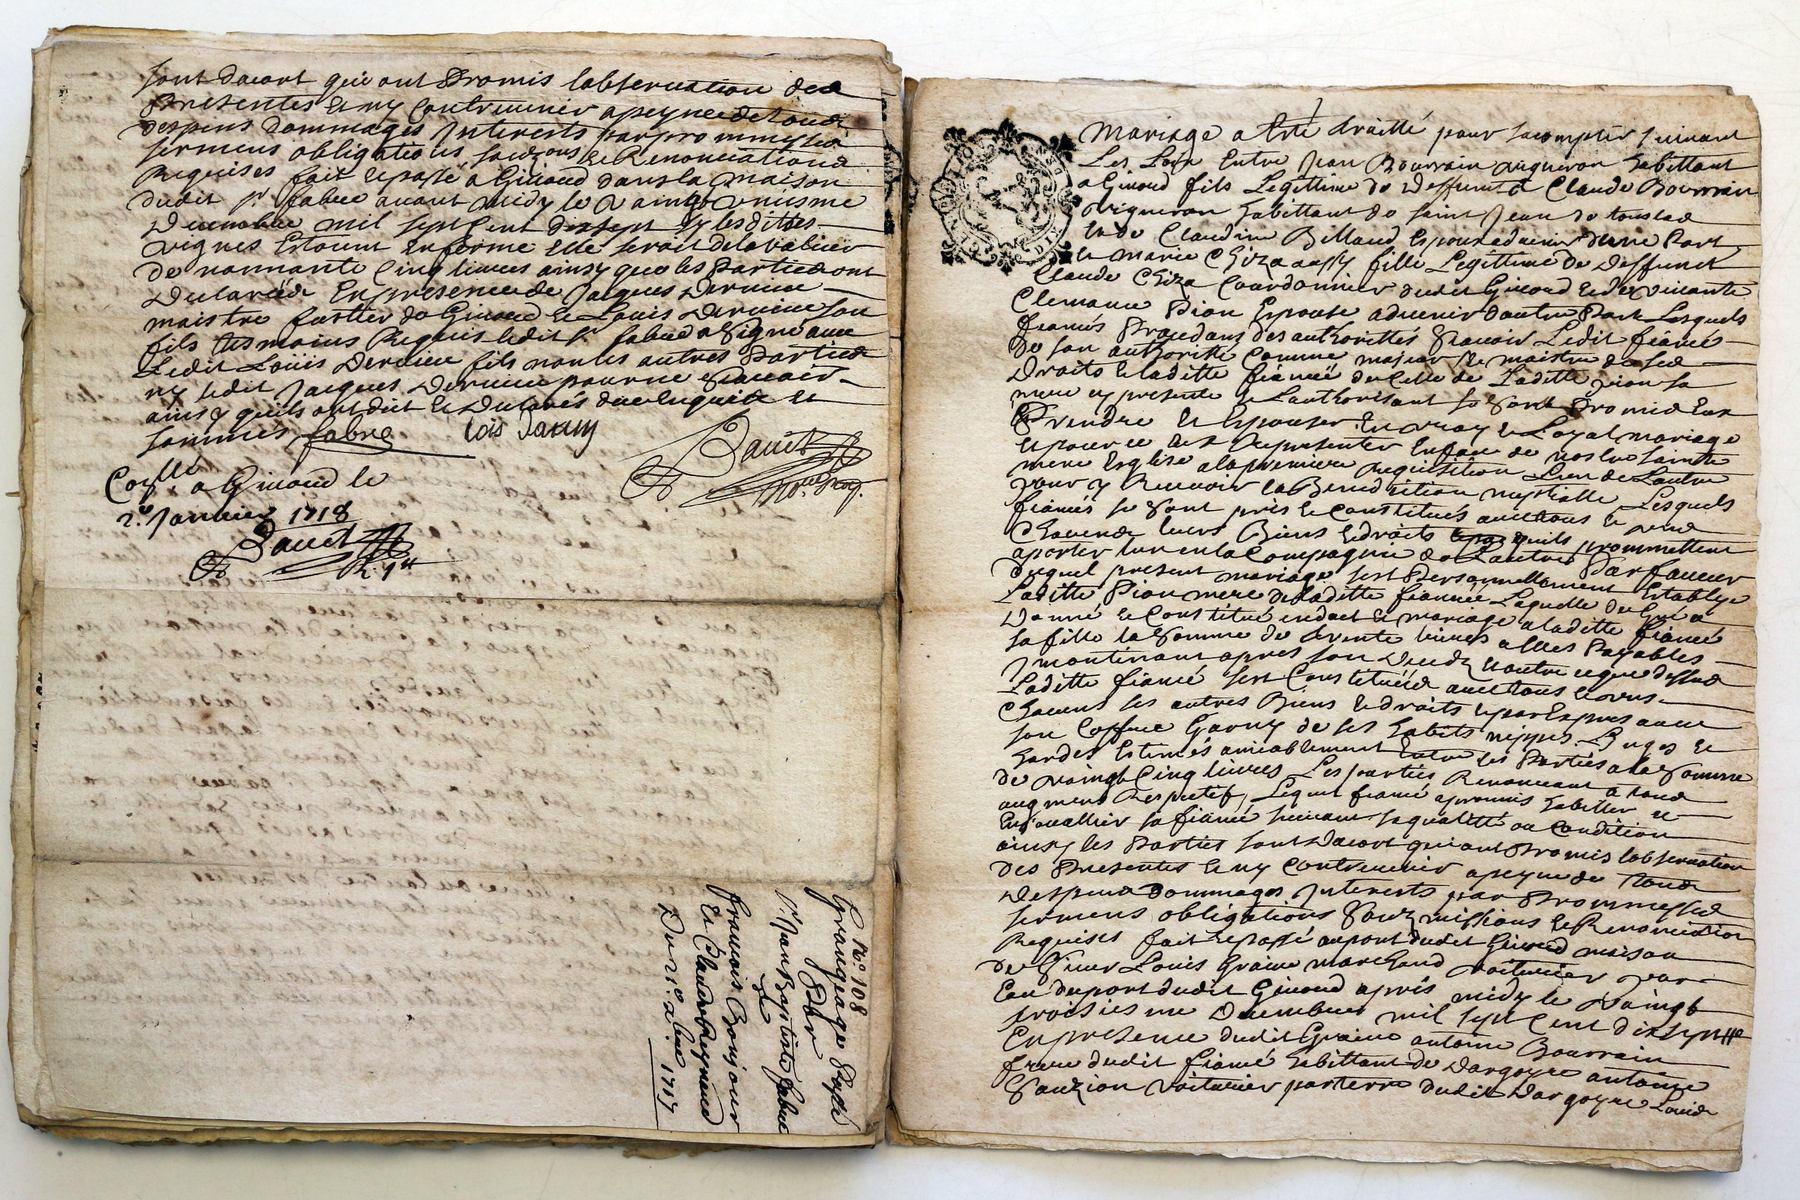 sont dacort qui ont Promis lobservation des
Presentes et ny Contrevenir a peyne de tous
despens dommages Interests par prommesses
sermens obligations soumissions et Renonciations
Requises fait et passé a Givord dans la maison
dudit sr fabre avant midy le vaingt uniesme
Decembre mil sept cent dix sept sy lesdittes
vignes Estoient en forme elle seroit de la valleur
de nonnante Cinq livres ainsy que les Parties ont
Declarées En presence de Jacques Dervieu
maistre fustier de Givord et Louis Dervieu son
fils tesmoins Requis ledit sr fabre a Signé avec
Ledit Loüis Dervieu fils non les autres Parties
ny ledit Jacques Dervieu pour ne scavoir
ainsy quils ont dit et Declarés de ce Enquis et
sommés fabre Lois Darvieu
Coꝛlle a Givord le
2e Janvier 1718
No. 108
Grangeage Passé
Par
sr Jean Baptiste fabre
a
francois Bonjour
et Claude Reynaud
Du 21e xbre 1717
Mariage a Esté traitté pour sacomplir suivant
Les Loix Entre Jean Bourrin vigneron habittant
a Givord fils Legittime de Deffunct Claude Bourrin
vigneron habittant de saint Jean de touslas
et de Claudine Billaud Espoux advenir dune Part
et Marie Chiza aussy fille Legittime de Deffunct
Claude Chiza Courdonnier dudit Givord et de vivante
Clemance Pion Espouse advenir dautre Part Lesquels
fiancés Procedans des authorittés scavoir Ledit fiancé
de son authoritté Comme majeur et maistre de ses
Droits et laditte fiancée de Celle de Laditte Pion sa
mere icy presente et Lauthorisant se sont Promis Eux
Prendre et Espouser En vray et Loyal mariage
et pour ce de se Representer En face de nostre sainte
mere Esglise a la premiere Requisition Lun de Lautre
pour y Recevoir la Benediction nuptialle Lesquels
fiancés se sont pris et Constitués avec tous et
Chacuns leurs Biens et droits quils prommettent
aporter lun en la Compagnie de Lautre Par faveur
duquel present mariage sest Personnellement Establye
Laditte Pion mere de laditte fiancée Laquelle de Gré a
Donné et Constitué en dot et mariage a laditte fiancée
sa fille la Somme de trente livres a Elles Payables
Incontinant apres son Decedz Et outre ce que dessus
Laditte fiancée sest Constituée avec tous et
Chacuns ses autres Biens et droits et par Expres avec
son Coffre Garny de ses habits nippes Linges et
hardes Estimés amiablement Entre les Parties a la somme
de vaingt Cinq livres Les parties Renonceant a tous
augment Respectif, Lequel fiancé a promis habiller et
Enjoualler sa fiancée suivant sa qualitté ou Condition
ainsy les Parties sont Dacort qui ont Promis lobservation
Des Presentes et ny Contrevenir a peyne de Tous
Despens Dommages Interests par Prommesses
sermens obligations Soumissions et Renonciations
Requises fait et passé au port dudit Givord maison
de sieur Louis Graine marchand voiturier par
Eau du port dudit Givord aprés midy le vaingt
troisiesme Decembre mil sept Cent dix sept
En presence dudit Graine antoine Bourrin
frere dudit fiancé habittant de Dargoyre antoine
Pion voiturier par terre dudit Dargoyre Louis